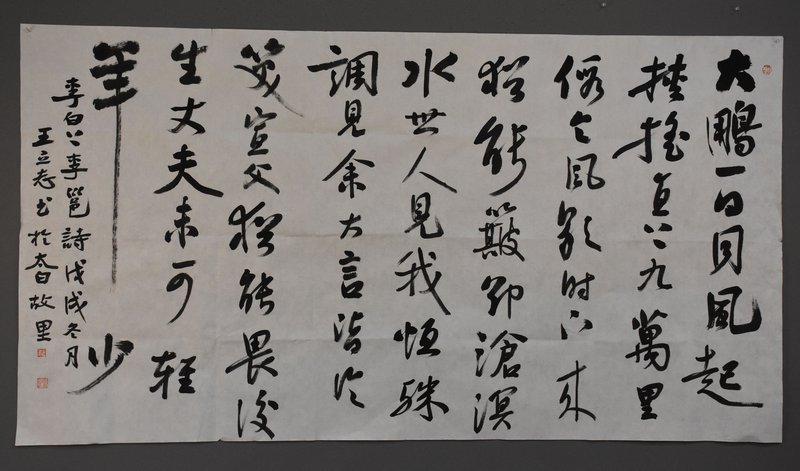 大鵬一日同風起
扶搖直上九萬里
假令風歇時下來
猶能簸却滄溟
水世人見我恒殊
調見余大言皆冷
笑宣父猶能畏後
生丈夫未可輕
年少
李白上李邕詩戊戌冬月
王立志书於太白故里